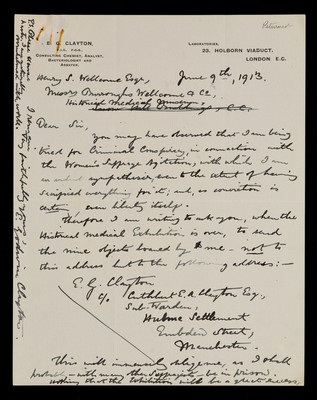 Returned
E. G. CLAYTON,
F.I.C., F.C.S.,
CONSULTING CHEMIST, ANALYST,
BACTERIOLOGIST AND
ASSAYER.
LABORATORIES,
23, HOLBORN VIADUCT,
LONDON E.C.
June 9th, 1913.
Henry S. Wellcome Esqr,
Messrs Burroughs Wellcome & Co.,
Historical Medical Museum,
E.C.
Dear Sir,
You may have observed that I am being
tried for Criminal Conspiracy, in connection with
the Women's Suffrage Agitation, with which I am
sympathiser, even to the extent of having
sacrificed everything for it; and, as conviction is
certain, even liberty itself.
Therefore I am writing to ask you, when the
Historical Medical Exhibition is over, to send
the nine objects loaned by me – not to
this address but to the following address:–
E. G. Clayton
c/o Cuthbert E. A. Clayton Esq,
Sub-Warden,
Hulme Settlement
Embden Street,
Manchester.
This will immensely oblige me, as I shall
probably – with many other Suffragists – be in prison.
Wishing that the Exhibition will be a great success,
I remain
Yours faithfully
Edwin G. Clayton.
P.S. Please